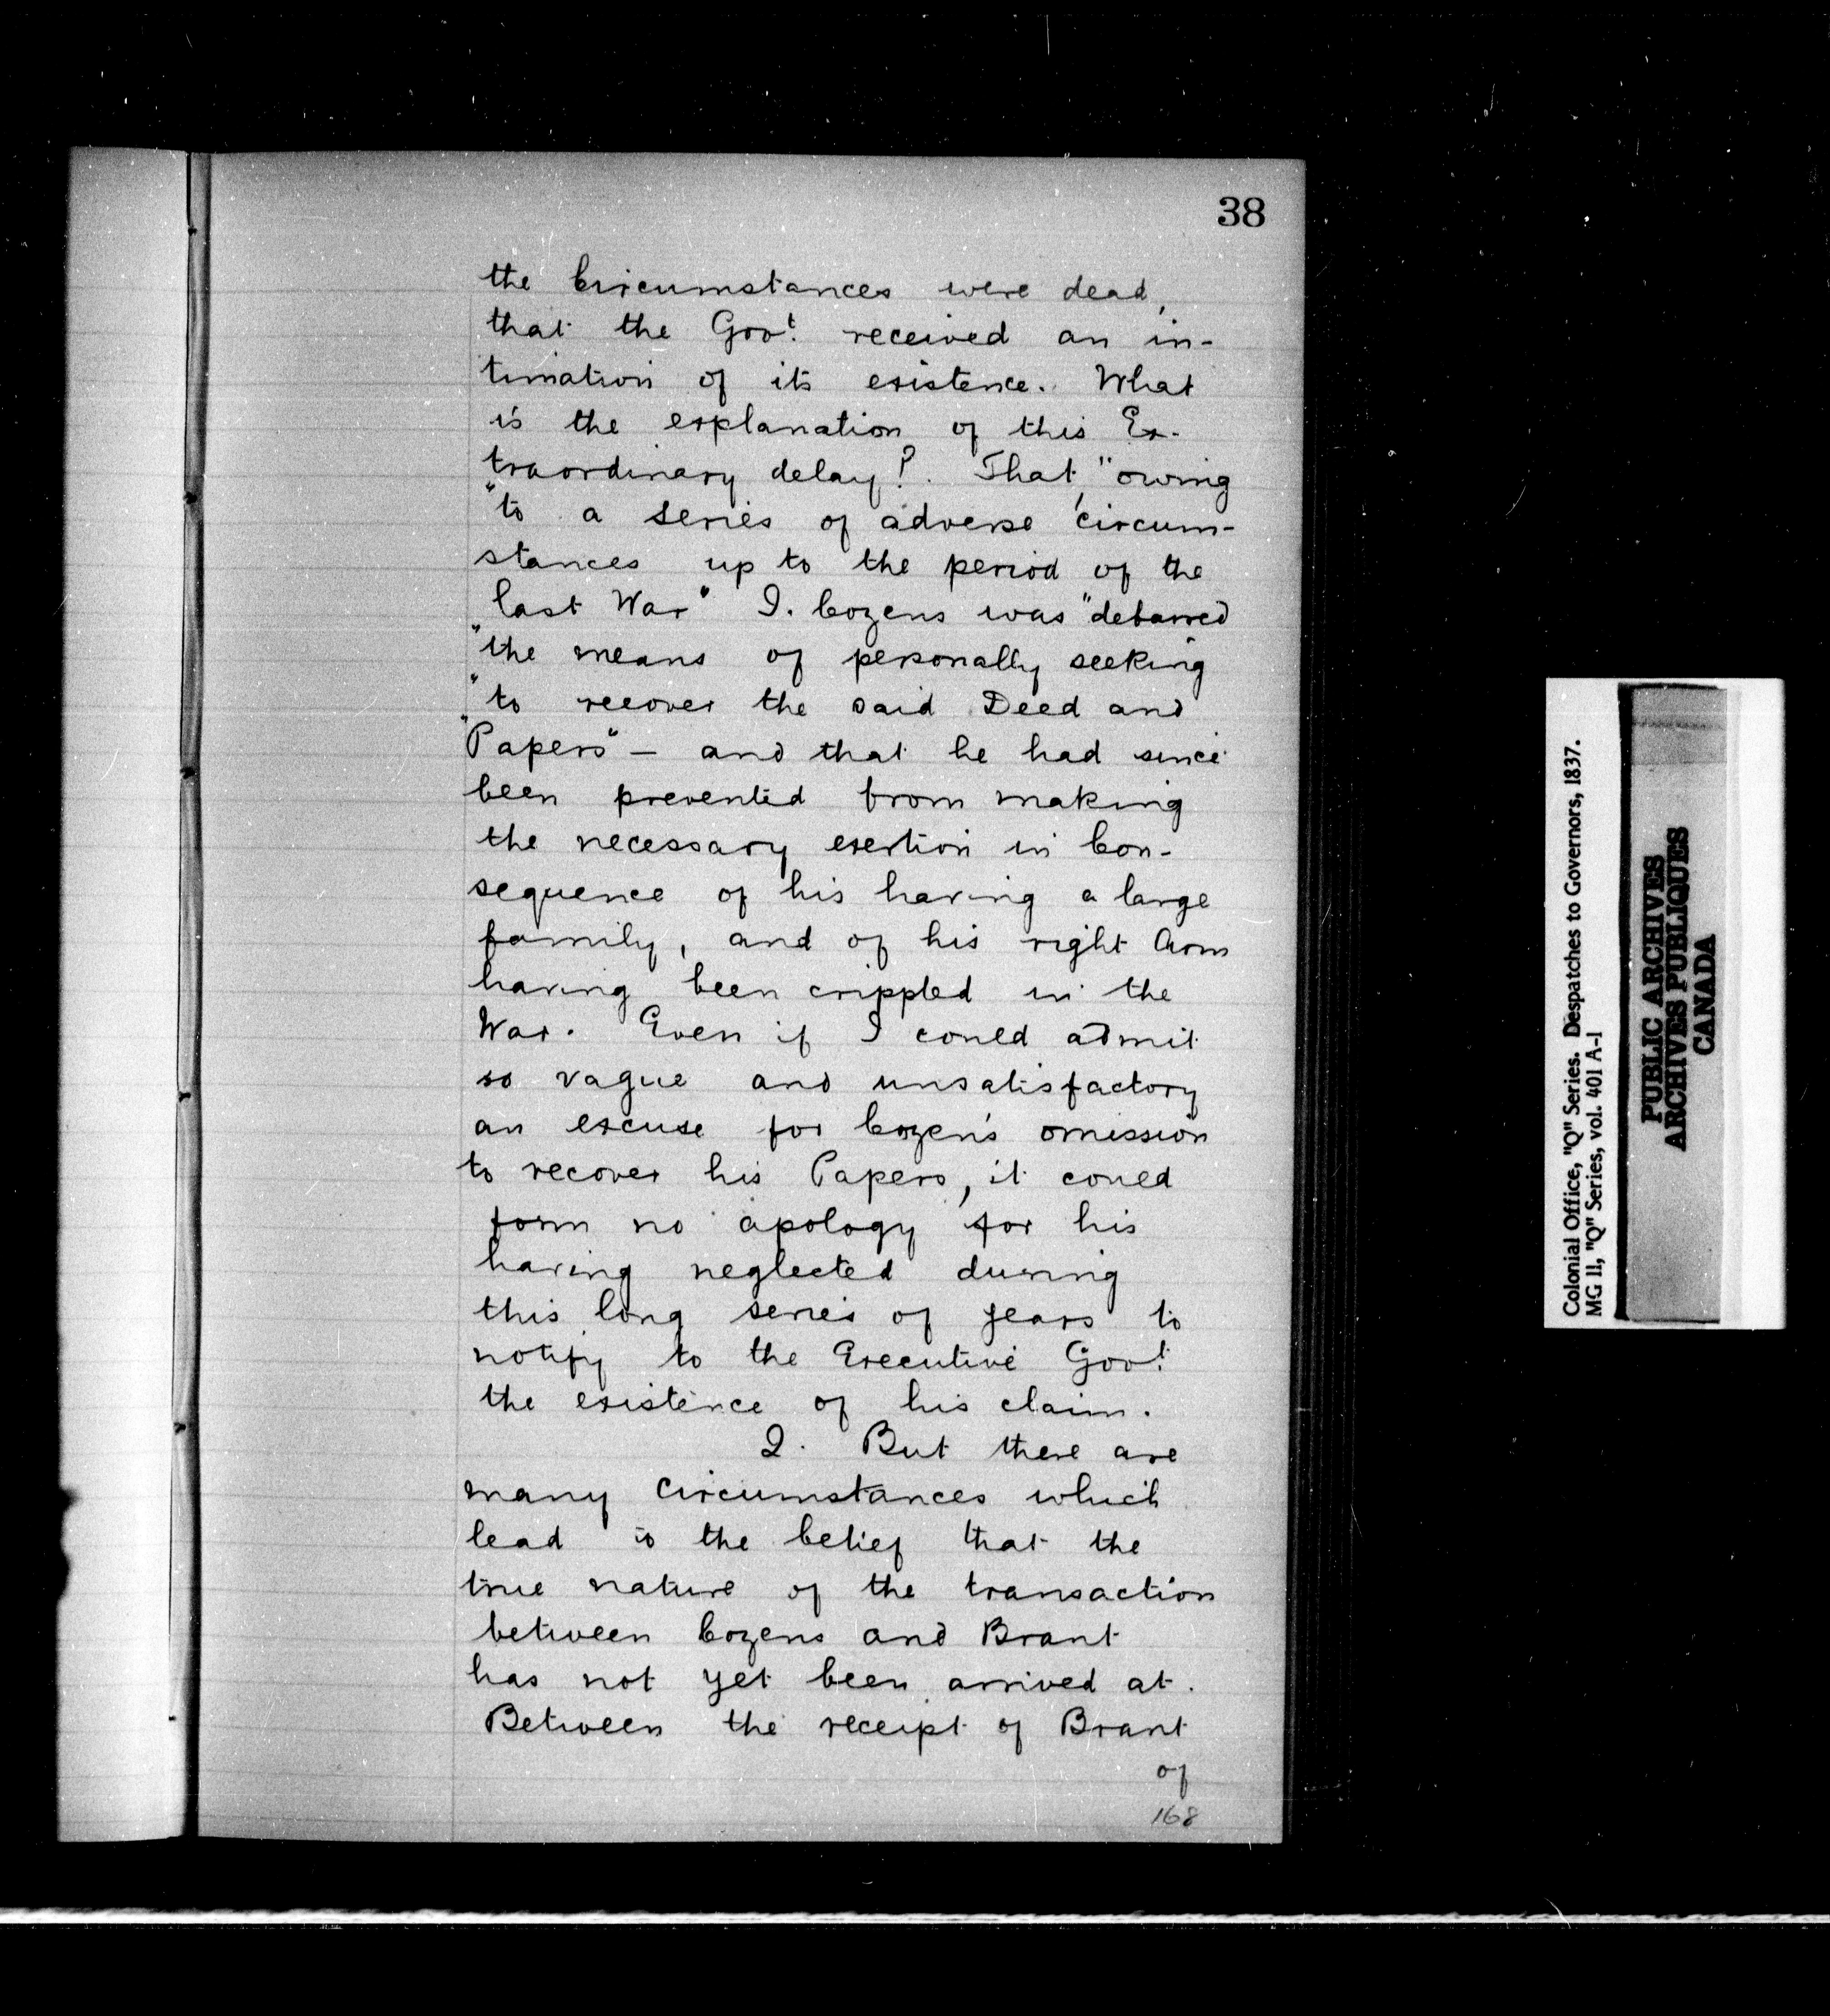 38
the Circumstances were dead,
that the Govt. received an in-
timation of its existence. What
is the explanation of this Ex-
traordinary delay? That, "owing
"to a series of adverse circum-
stances up to the period of the
last War" I. Cozens was "debarred
"the means of personally seeking
"to recover the said Deed and
"Papers" — and that he had since
been prevented from making
the necessary exertion in Con-
sequence of his having a large
family, and of his right Arm
having been crippled in the
War. Even if I could admit
so vague and unsatisfactory
an excuse for Cozen's omission
to recover his Papers, it could
form no apology for his
having neglected during
this long series of years to
notify to the Executive Govt.
the existence of his claim.
2. But there are
many Circumstances which
lead to the belief that the
true nature of the transaction
between Cozens and Brant
has not yet been arrived at.
Between the receipt of Brant
of
168
Colonial Office, "Q" Series. Despatches to Governors, 1837.
MG 11, "Q" Series, vol. 401 A-1
PUBLIC ARCHIVES
ARCHIVES PUBLIQUES
CANADA